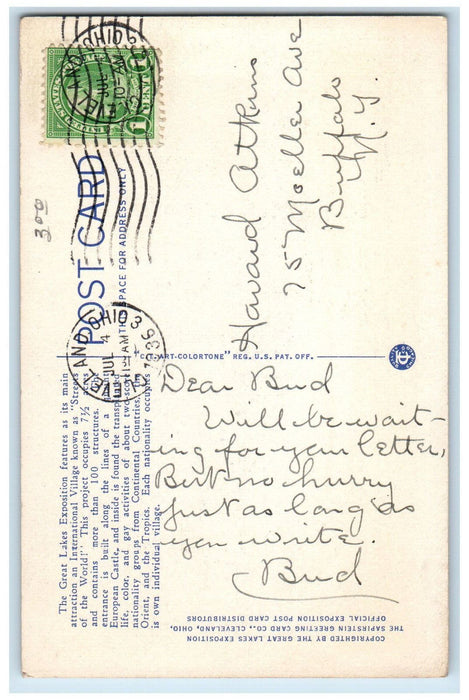 POST CARD
THIS SPACE FOR ADDRESS ONLY
CLEVELAND, OHIO 3
JUL 4
1936
3 00
Howard Atkins
75 Moeller Ave
Buffalo
N. Y.
"C.T. ART-COLORTONE" REG. U.S. PAT. OFF.
Dear Bud
Will be wait-
ing for your letter,
But no hurry
just as long as
you write.
Bud
The Great Lakes Exposition features as its main
attraction an International Village known as "Streets
of the World." This project occupies 7½ acres
and contains more than 100 structures. The
entrance is built along the lines of a
European Castle, and inside is found the transplanted
life, color, and gay activities of about two-score
nationality groups from Continental Countries, the
Orient, and the Tropics. Each nationality occupies
is own individual village.
COPYRIGHTED BY THE GREAT LAKES EXPOSITION
THE SAPIRSTEIN GREETING CARD CO., CLEVELAND, OHIO.
OFFICIAL EXPOSITION POST CARD DISTRIBUTORS